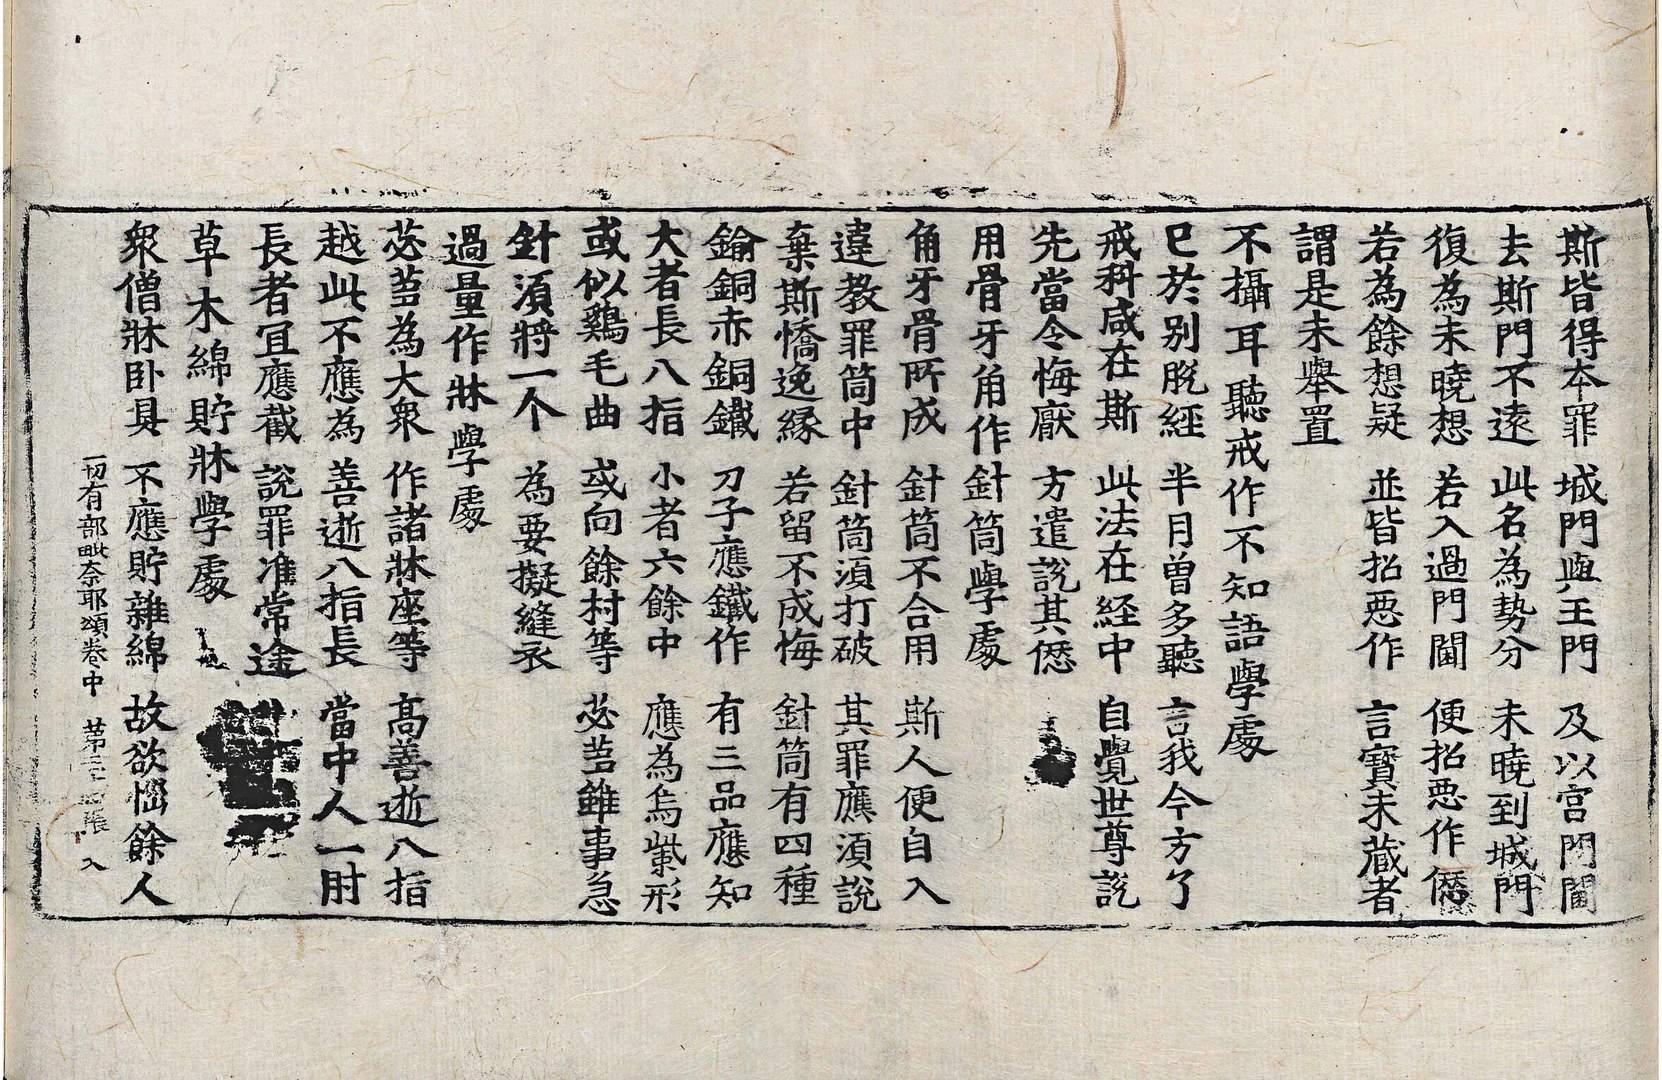 斯皆得本罪 城門與王門 及以宮門閫
去斯門不遠 此名為勢分 未曉到城門
復為未曉想 若入過門閫 便招惡作𠎝
若為餘想疑 並皆招惡作 言寶未藏者
謂是未舉置
不攝耳聽戒作不知語學處
已於別脫經 半月曾多聽 言我今方了
戒科咸在斯 此法在経中 自覺世尊說
先當令悔厭 方遣說其𠎝
用骨牙角作針筒學處
角牙骨所成 針筒不合用 斯人便自入
違教罪筒中 針筒須打破 其罪應須說
棄斯憍逸緣 若留不成悔 針筒有四種
鍮銅赤銅鐵 刀子應鐵作 有三品應知
大者長八指 小者六餘中 應為烏㭰形
或似鷄毛曲 或向餘村等 苾芻雖事急
針須將一个 為要擬縫衣
過量作牀學處
苾芻為大衆 作諸牀座等 高善逝八指
越此不應為 善逝八指長 當中人一肘
長者宜應截 說罪准常途
草木綿貯牀學處
衆僧牀卧具 不應貯雜綿 故欲惱餘人
一切有部毗奈耶頌卷中 第三 張 入